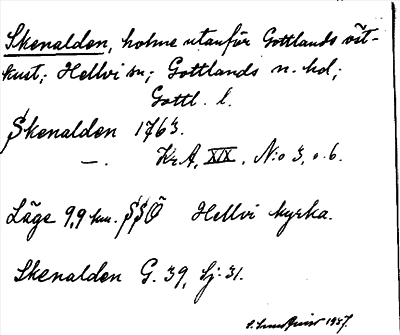 Skenalden, holme utanför Gottlands öst-
kust; Hellvi sn; Gottlands n. hd;
Gottl. l.
Skenalden 1763.
—. Kr A, XIX, N:o 3, o. 6.
Läge 9,9 km. SSÖ Hellvi kyrka.
Skenalden G. 39, Sj. 31.
1937.